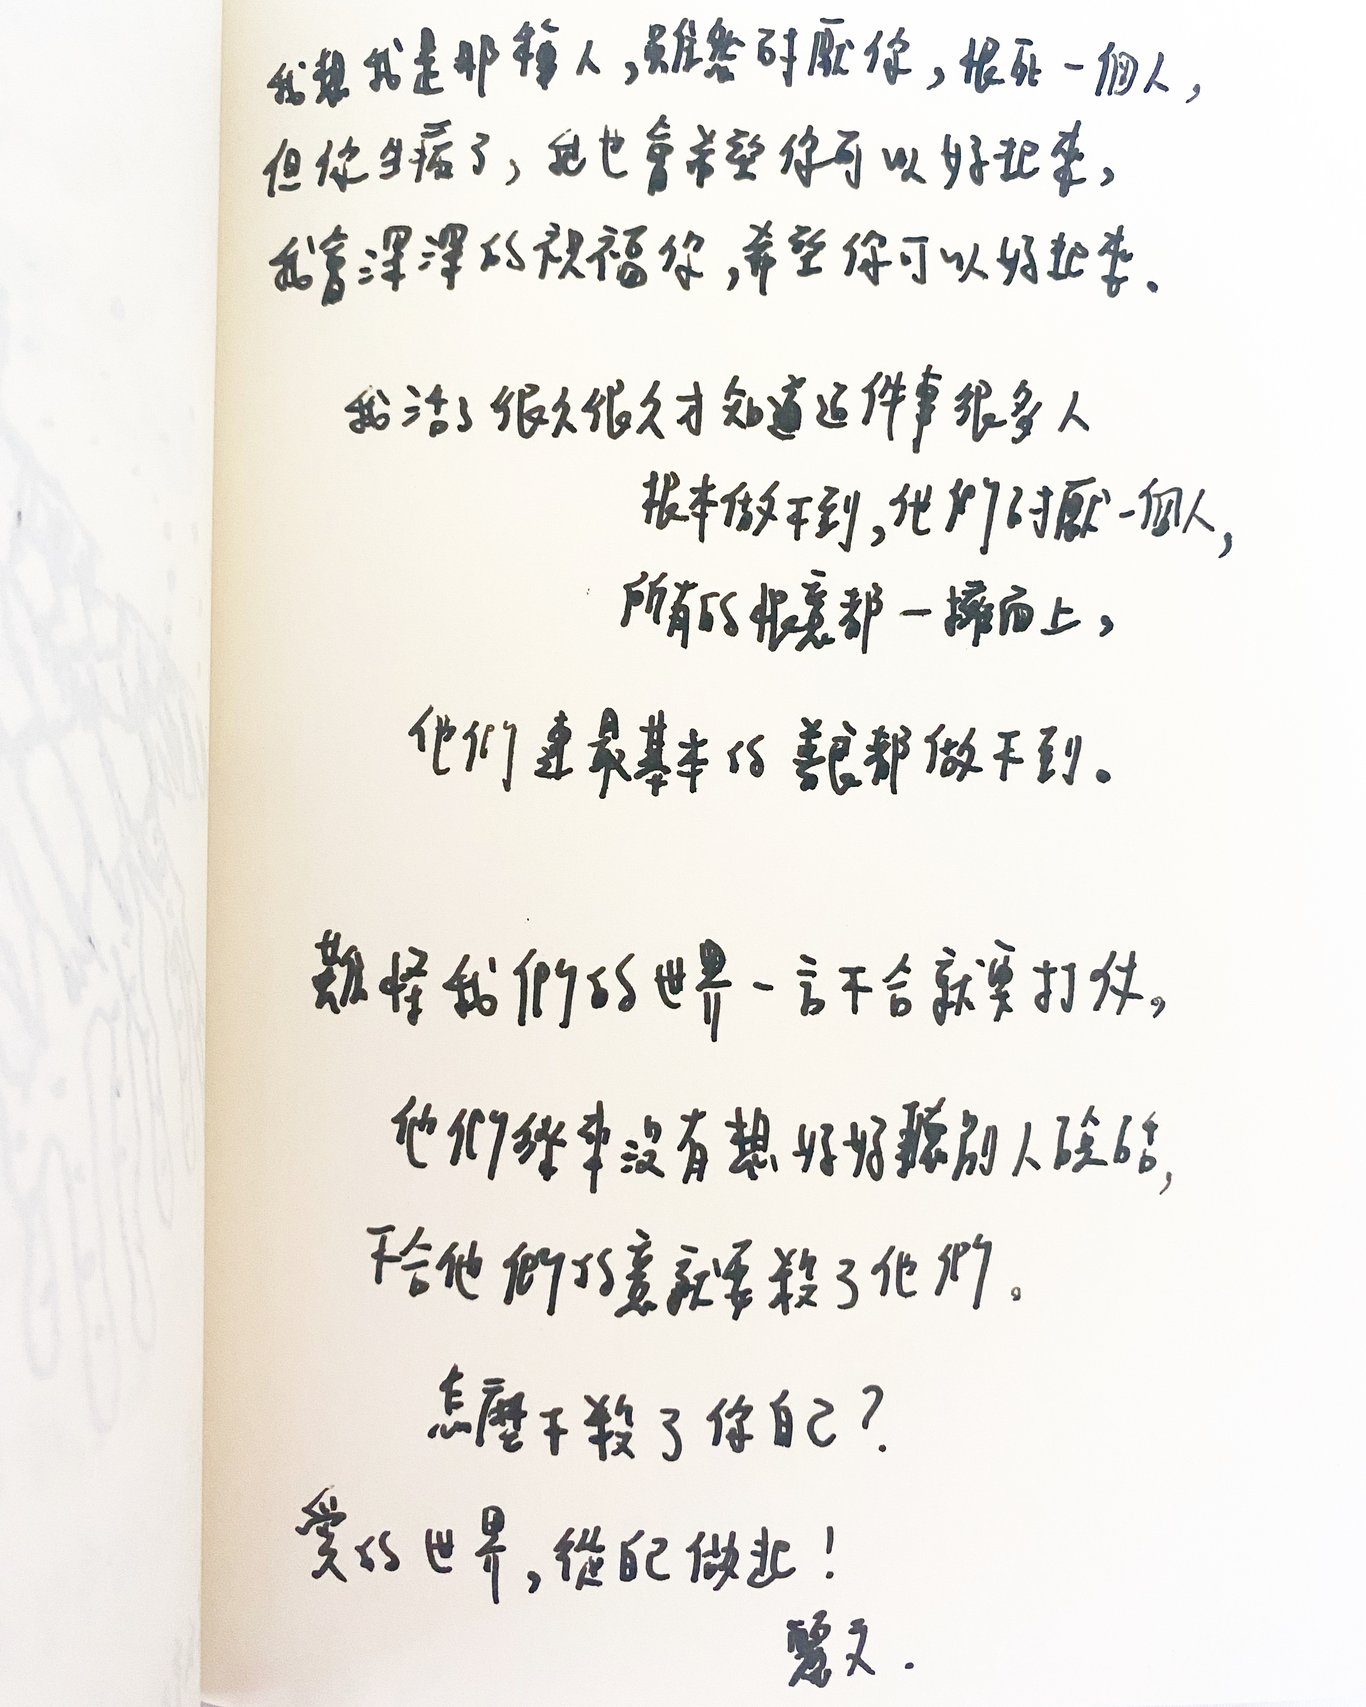 我想我是那種人，雖然討厭你，恨死一個人，
但你生病了，我也會希望你可以好起來，
我會深深的祝福你，希望你可以好起來．
我活了很久很久才知道這件事很多人
根本做不到，他們討厭一個人，
所有的恨意都一擁而上，
他們連最基本的善良都做不到。
難怪我們的世界一言不合就要打仗。
他們從來沒有想好好聽別人說話，
不合他們的意就要殺了他們。
怎麼不殺了你自己？
愛的世界，從自己做起！
麗文．